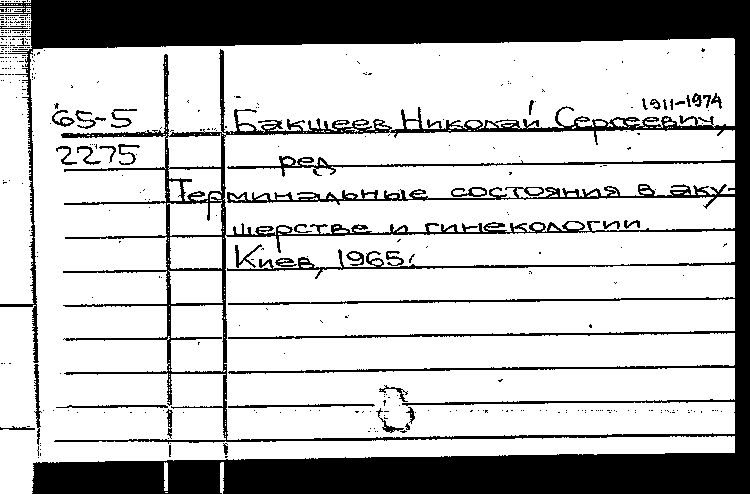 1911-1974
65-5 Бакшеев, Николай Сергеевич,
2275 ред.
Терминальные состояния в аку-
шерстве и гинекологии.
Киев, 1965.